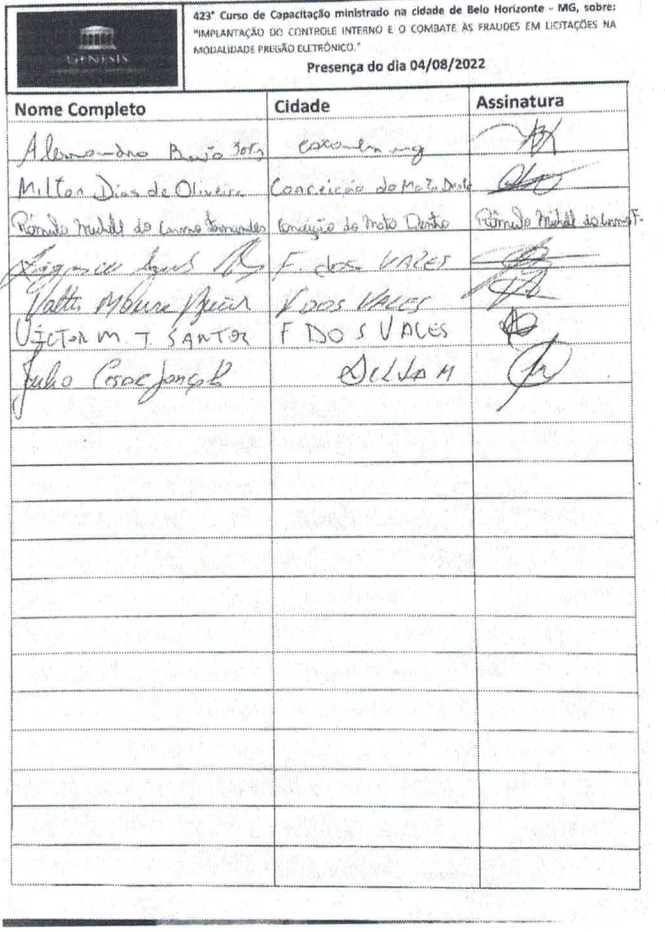 GENESIS
423° Curso de Capacitação ministrado na cidade de Belo Horizonte - MG, sobre:
"IMPLANTAÇÃO DO CONTROLE INTERNO E O COMBATE ÀS FRAUDES EM LICITAÇÕES NA
MODALIDADE PREGÃO ELETRÔNICO."
Presença do dia 04/08/2022
Nome Completo Cidade Assinatura
Milton Dias de Oliveira Conceição do Mato Dentro
Rômulo Michell do Carmo Fernandes Conceição do Mato Dentro Rômulo Michell do Carmo F.
F. dos VALES
Valter Moura V DOS VALES
VICTOR M. T. SANTOS F DOS VALES
Julio Cesar